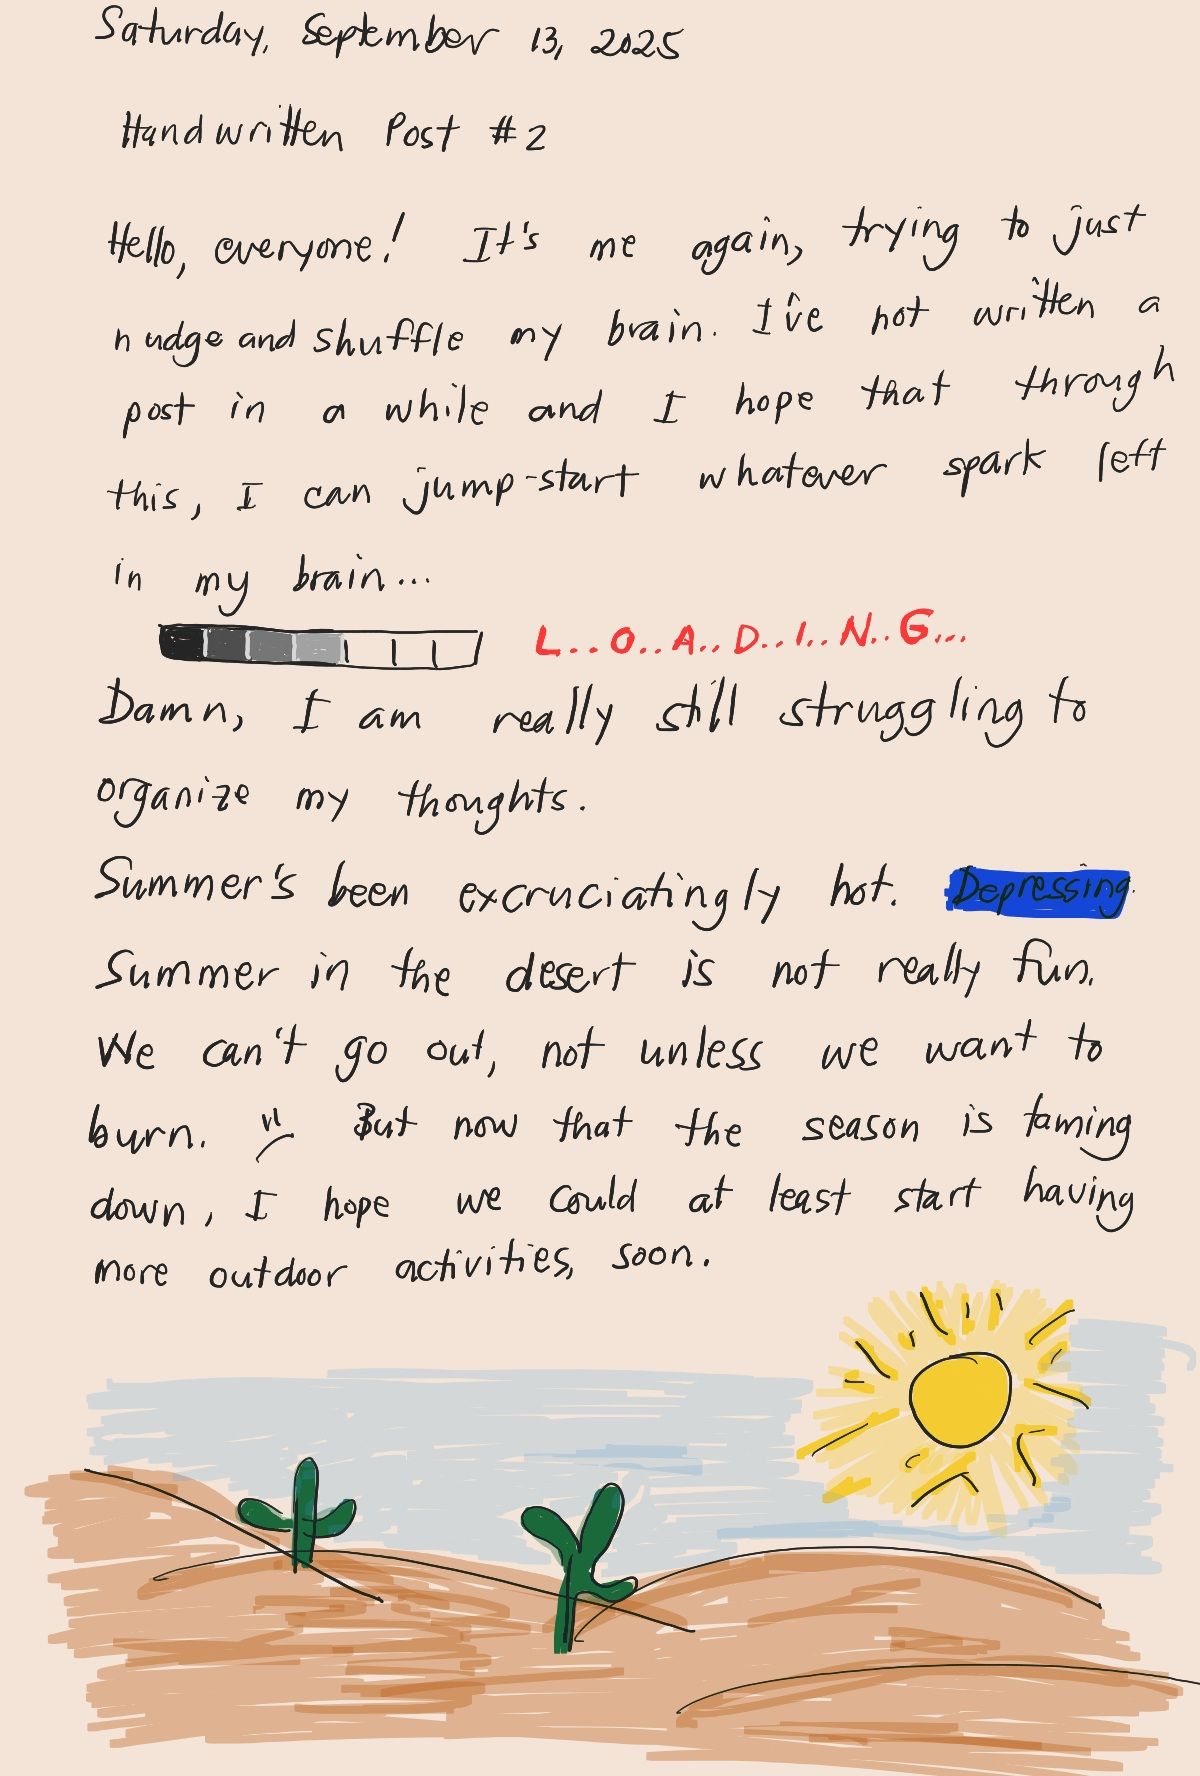 Saturday, September 13, 2025
Handwritten Post #2
Hello, everyone! It's me again, trying to just
nudge and shuffle my brain. I've not written a
post in a while and I hope that through
this, I can jump-start whatever spark left
in my brain...
L..O..A..D..I..N..G...
Damn, I am really still struggling to
organize my thoughts.
Summer's been excruciatingly hot. Depressing.
Summer in the desert is not really fun.
We can't go out, not unless we want to
burn. But now that the season is taming
down, I hope we could at least start having
more outdoor activities, soon.